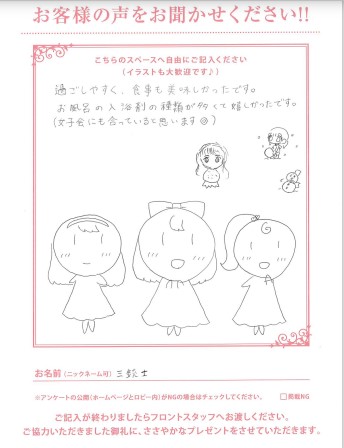 お客様の声をお聞かせください!!
こちらのスペースへ自由にご記入ください
(イラストも大歓迎です♪)
過ごしやすく、食事も美味しかったです。
お風呂の入浴剤の種類が多くて嬉しかったです。
(女子会にも合っていると思います◎)
お名前(ニックネーム可) 三銃士
※アンケートの公開(ホームページとロビー内)がNGの場合はチェックしてください。 □掲載NG
ご記入が終わりましたらフロントスタッフへお渡しください。
ご協力いただきました御礼に、ささやかなプレゼントをさせていただきます。